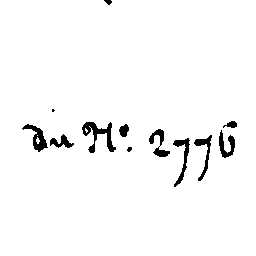 du N°. 2776